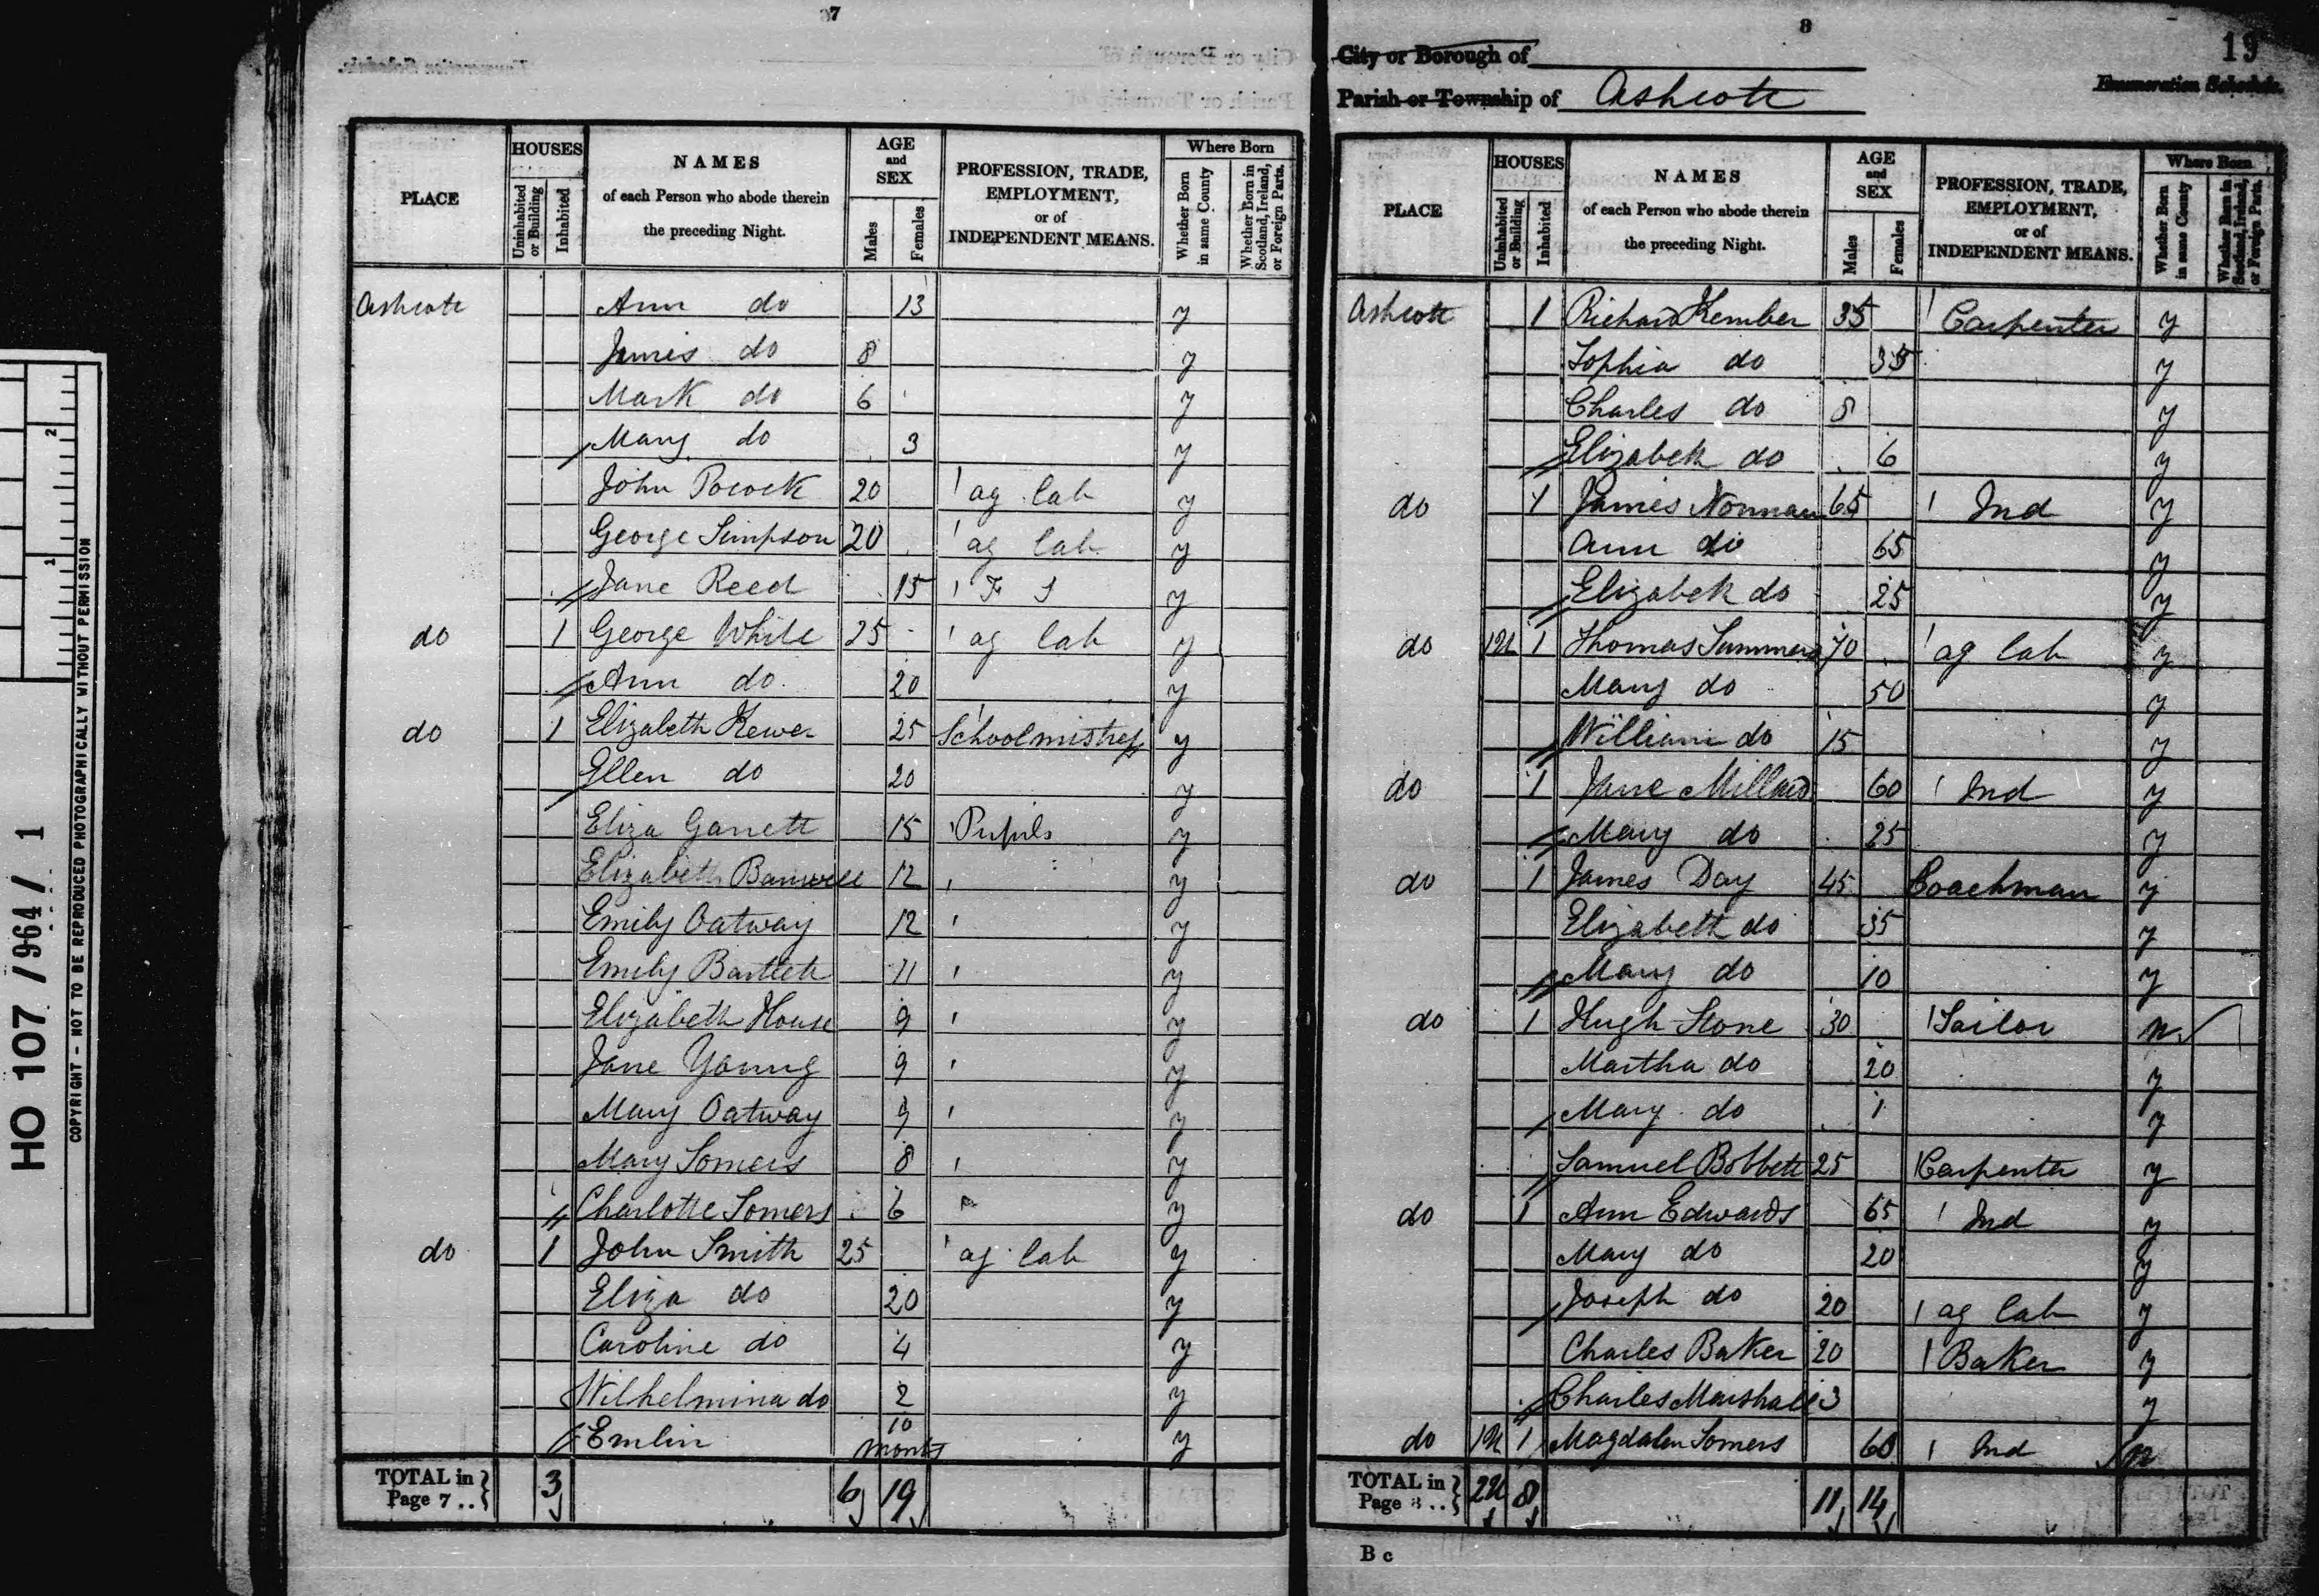 7
PLACE
HOUSES
Uninhabited or Building
Inhabited
NAMES
of each Person who abode therein
the preceding Night.
AGE
and
SEX
Males
Females
PROFESSION, TRADE,
EMPLOYMENT,
or of
INDEPENDENT MEANS.
Where Born
Whether Born in same County
Whether Born in Scotland, Ireland, or Foreign Parts.
Ashcott Ann do 13 y
James do 8 y
Mark do 6 y
Mary do 3 y
John Pocock 20 ag lab y
George Simpson 20 ag lab y
Jane Reed 15 F S y
do 1 George White 25 ag lab y
Ann do 20 y
do 1 Elizabeth Kewer 25 Schoolmistress y
Ellen do 20 y
Eliza Garrett 15 Pupils y
Elizabeth Banwell 12 y
Emily Oatway 12 y
Emily Bartlett 11 y
Elizabeth House 9 y
Jane Young 9 y
Mary Oatway 9 y
Mary Somers 8 y
Charlotte Somers 6 y
do 1 John Smith 25 ag lab y
Eliza do 20 y
Caroline do 4 y
Wilhelmina do 2 y
Emlin 10 months y
TOTAL in Page 7 .. 3 6 19
8
19
City or Borough of
Enumeration Schedule.
Parish or Township of Ashcott
PLACE
HOUSES
Uninhabited or Building
Inhabited
NAMES
of each Person who abode therein
the preceding Night.
AGE
and
SEX
Males
Females
PROFESSION, TRADE,
EMPLOYMENT,
or of
INDEPENDENT MEANS.
Where Born
Whether Born in same County
Whether Born in Scotland, Ireland, or Foreign Parts.
Ashcott 1 Richard Kember 35 Carpenter y
Sophia do 35 y
Charles do 8 y
Elizabeth do 6 y
do 1 James Norman 65 Ind y
Ann do 65 y
Elizabeth do 25 y
do 1U 1 Thomas Summers 70 ag lab y
Mary do 50 y
William do 15 y
do 1 Jane Millard 60 Ind y
Mary do 25 y
do 1 James Day 45 Coachman y
Elizabeth do 35 y
Mary do 10 y
do 1 Hugh Stone 30 Tailor n
Martha do 20 y
Mary do 1 y
Samuel Bobbett 25 Carpenter y
do 1 Ann Edwards 65 Ind y
Mary do 20 y
Joseph do 20 ag lab y
Charles Baker 20 Baker y
Charles Marshall 3 y
do 1U 1 Magdalen Somers 60 Ind n
TOTAL in Page 8 .. 2U 8 11 14
B c
HO 107 / 964 / 1
COPYRIGHT - NOT TO BE REPRODUCED PHOTOGRAPHICALLY WITHOUT PERMISSION
1
2